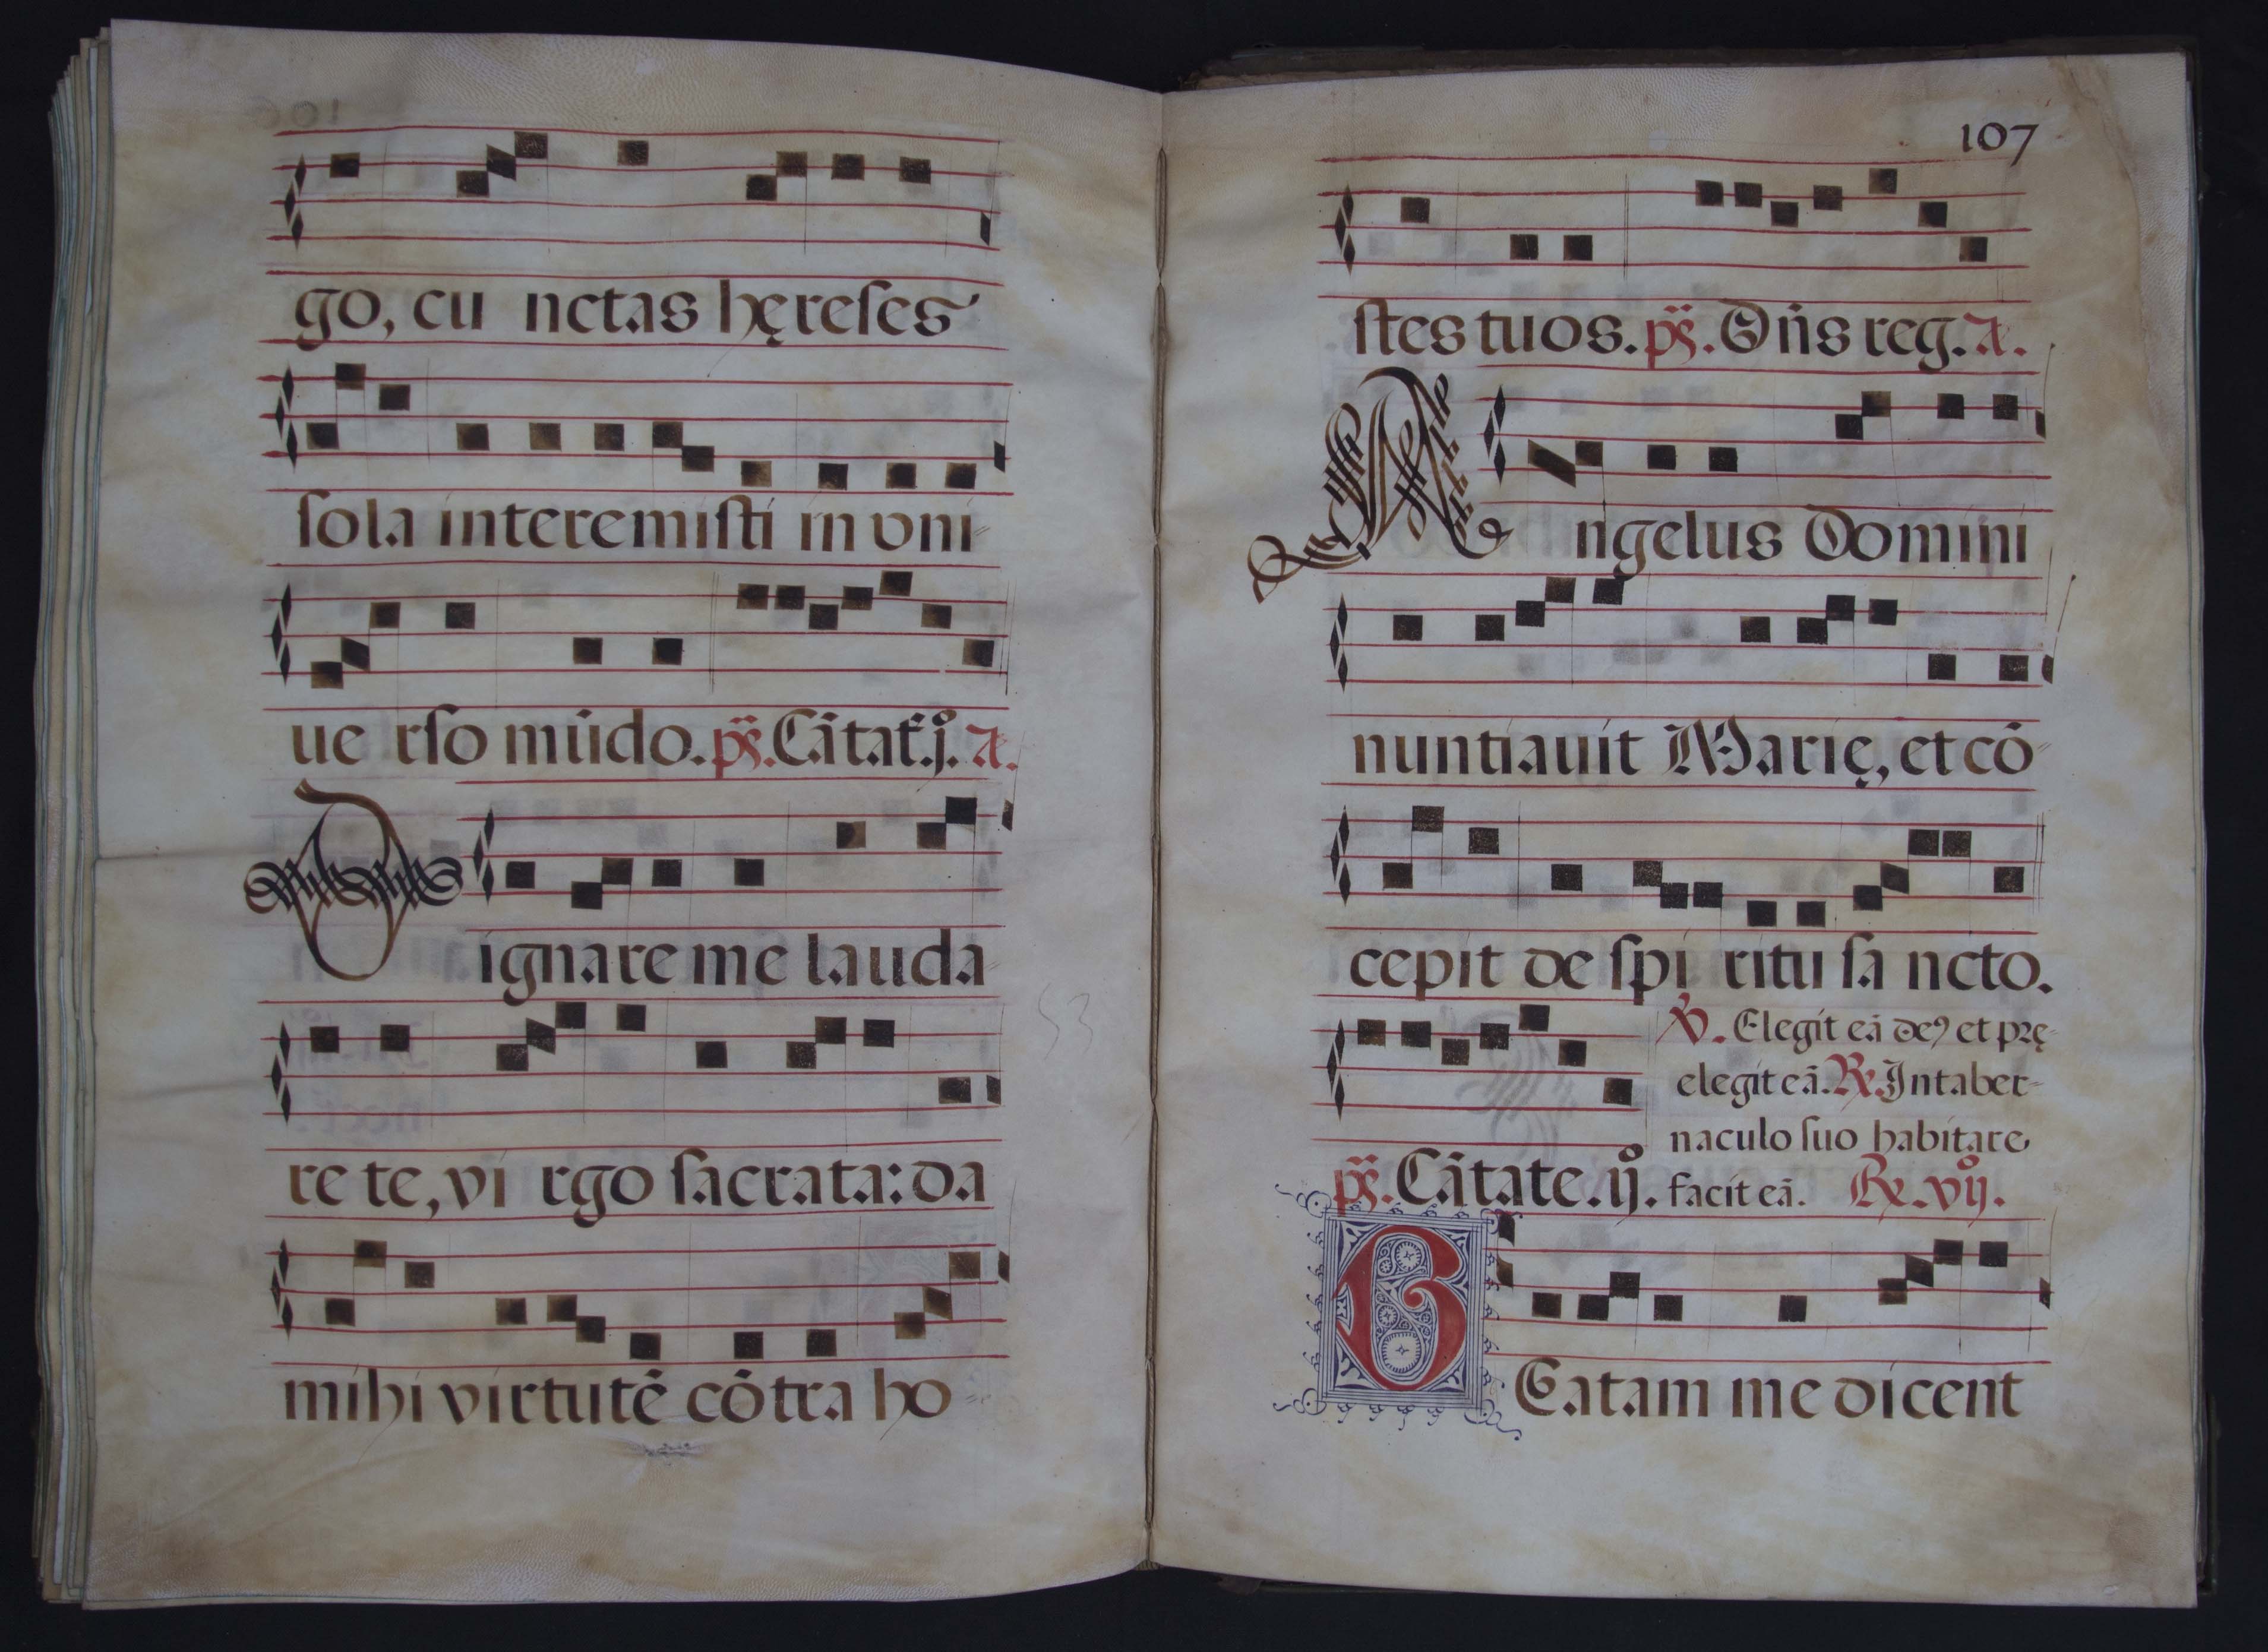 go, cu nctas hęreses
sola interemisti in vni-
ue rso mūdo. ps̄. Cātat. j.º a.
Dignare me lauda-
re te, vi rgo sacrata: da
mihi virtutē cōtra ho-
107
stes tuos. ps̄. Dn̄s reg. a.
Angelus Domini
nuntiauit Marię, et cō-
cepit de spi ritu sa ncto.
℣. Elegit eā de9 et prę-
elegit eā. ℟. In taber-
naculo suo habitare
ps̄. Cātate. ij.º facit eā. ℟. vij.º
BEatam me dicent
53